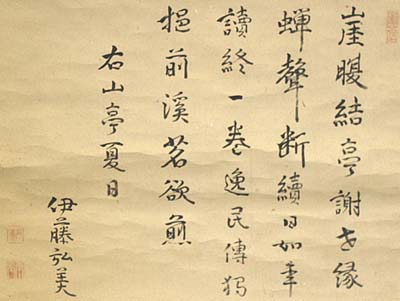 崖腰結亭謝世縁
蝉聲断續日如年
讀終一巻逸民傳獨
挹前溪茗欲煎
右山亭夏日
伊藤弘美